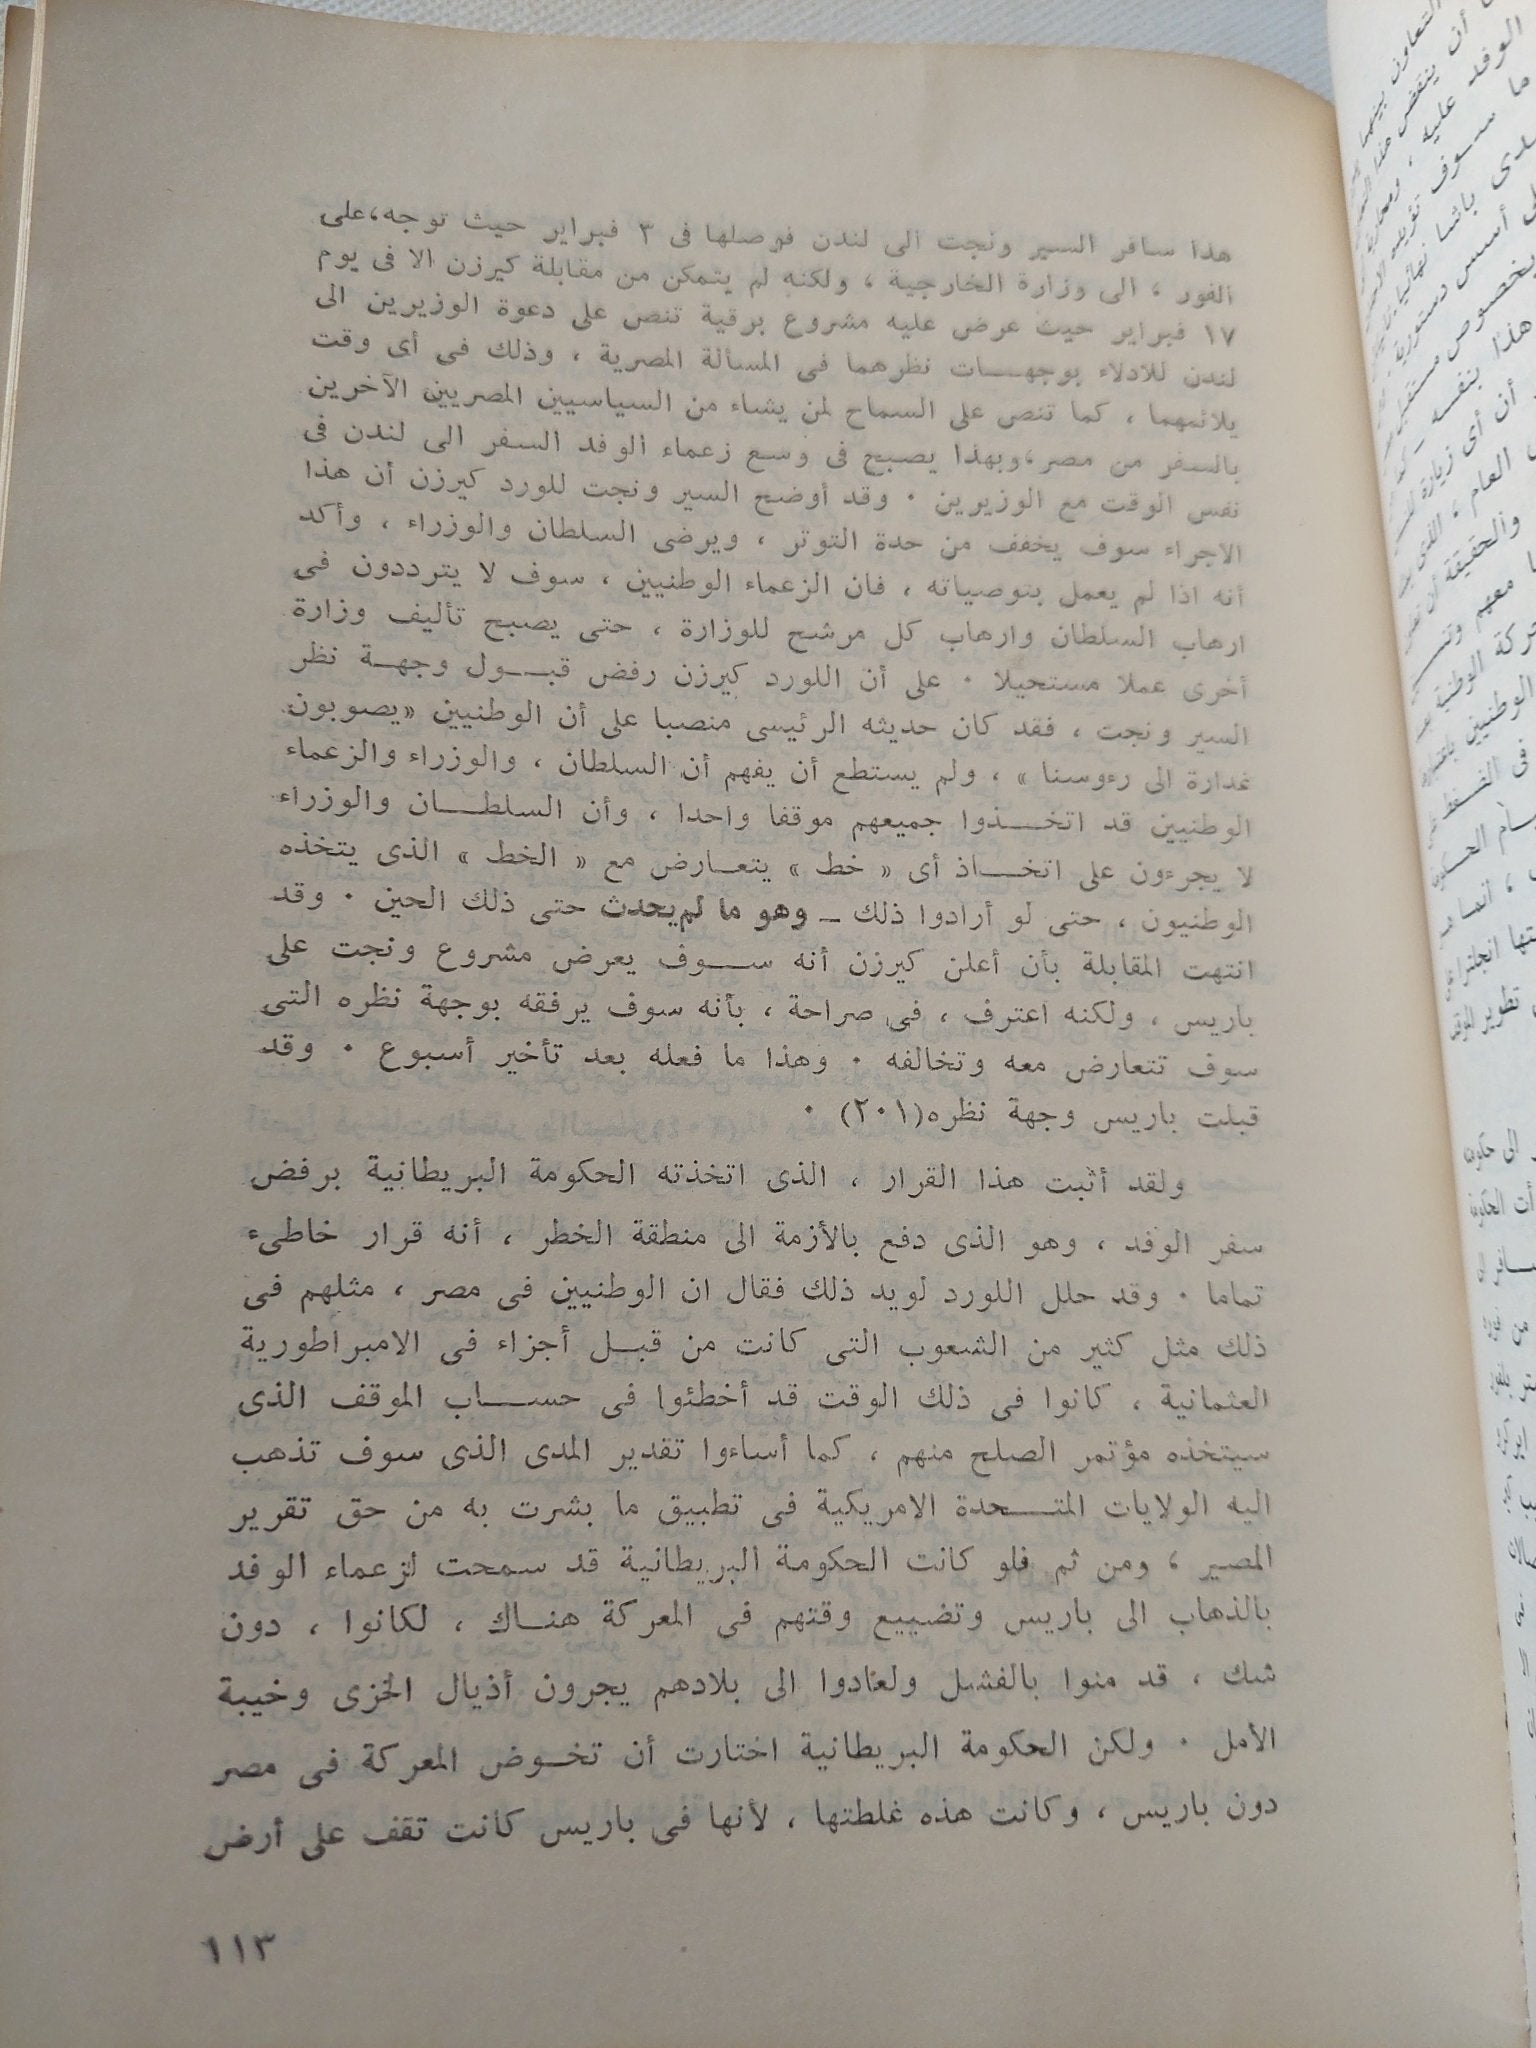 هذا سافر السير ونجت الى لندن فوصلها فى ٣ فبراير حيث توجه،على
الفور ، الى وزارة الخارجية ، ولكنه لم يتمكن من مقابلة كيرزن الا فى يوم
١٧ فبراير حيث عرض عليه مشروع برقية تنص على دعوة الوزيرين الى
لندن للادلاء بوجهات نظرهما فى المسألة المصرية ، وذلك فى أى وقت
يلائمهما ، كما تنص على السماح لمن يشاء من السياسيين المصريين الآخرين
بالسفر من مصر،وبهذا يصبح فى وسع زعماء الوفد السفر الى لندن فى
نفس الوقت مع الوزيرين ٠ وقد أوضح السير ونجت للورد كيرزن أن هذا
الاجراء سوف يخفف من حدة التوتر ، ويرضى السلطان والوزراء ، وأكد
أنه اذا لم يعمل بتوصياته ، فان الزعماء الوطنيين ، سوف لا يترددون فى
ارهاب السلطان وارهاب كل مرشح للوزارة ، حتى يصبح تأليف وزارة
أخرى عملا مستحيلا ٠ على أن اللورد كيرزن رفض قبول وجهة نظر
السير ونجت ، فقد كان حديثه الرئيسى منصبا على أن الوطنيين «يصوبون
غدارة الى رءوسنا » ، ولم يستطع أن يفهم أن السلطان ، والوزراء والزعماء
الوطنيين قد اتخذوا جميعهم موقفا واحدا ، وأن السلطان والوزراء
لا يجرءون على اتخاذ أى « خط » يتعارض مع « الخط » الذى يتخذه
الوطنيون ، حتى لو أرادوا ذلك – وهو ما لم يحدث حتى ذلك الحين ٠ وقد
انتهت المقابلة بأن أعلن كيرزن أنه سوف يعرض مشروع ونجت على
باريس ، ولكنه اعترف ، فى صراحة ، بأنه سوف يرفقه بوجهة نظره التى
سوف تتعارض معه وتخالفه ٠ وهذا ما فعله بعد تأخير أسبوع ٠ وقد
قبلت باريس وجهة نظره(٢٠١) ٠
ولقد أثبت هذا القرار ، الذى اتخذته الحكومة البريطانية برفض
سفر الوفد ، وهو الذى دفع بالأزمة الى منطقة الخطر ، أنه قرار خاطىء
تماما ٠ وقد حلل اللورد لويد ذلك فقال ان الوطنيين فى مصر ، مثلهم فى
ذلك مثل كثير من الشعوب التى كانت من قبل أجزاء فى الامبراطورية
العثمانية ، كانوا فى ذلك الوقت قد أخطئوا فى حساب الموقف الذى
سيتخذه مؤتمر الصلح منهم ، كما أساءوا تقدير المدى الذى سوف تذهب
اليه الولايات المتحدة الامريكية فى تطبيق ما بشرت به من حق تقرير
المصير ، ومن ثم فلو كانت الحكومة البريطانية قد سمحت لزعماء الوفد
بالذهاب الى باريس وتضييع وقتهم فى المعركة هناك ، لكانوا ، دون
شك ، قد منوا بالفشل ولعادوا الى بلادهم يجرون أذيال الخزى وخيبة
الأمل ٠ ولكن الحكومة البريطانية اختارت أن تخوض المعركة فى مصر
دون باريس ، وكانت هذه غلطتها ، لأنها فى باريس كانت تقف على أرض
١١٣